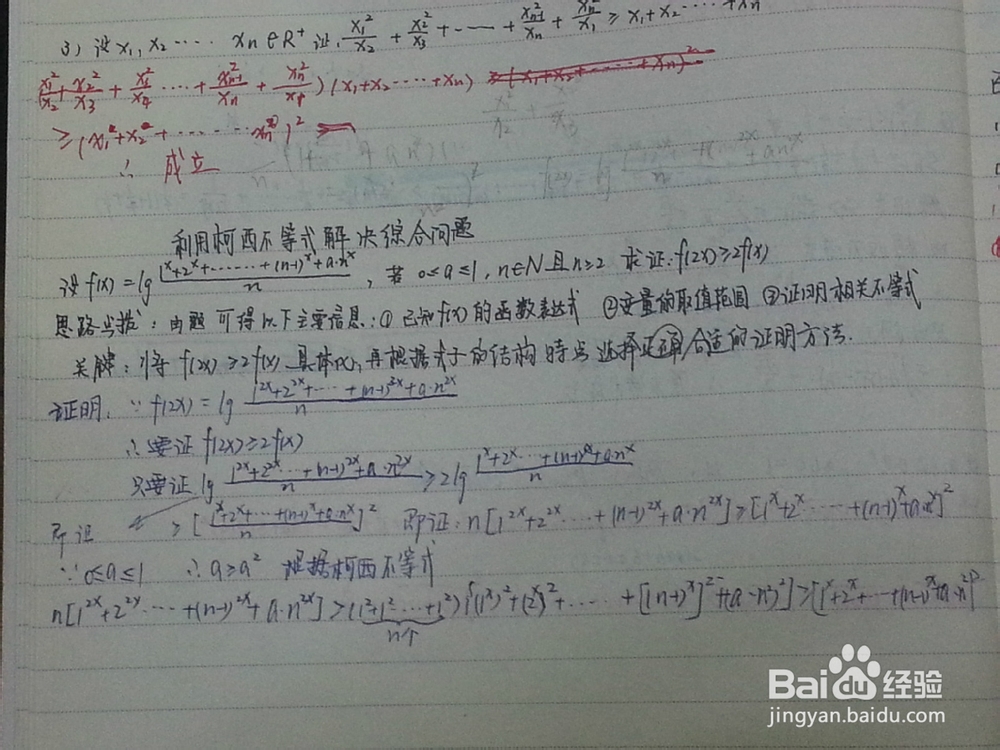 3) 设 x₁, x₂ ⋯⋯ xₙ∈R⁺ 证. x₁²/x₂ + x₂²/x₃ + ⋯⋯ + xₙ₋₁²/xₙ + xₙ²/x₁ ≥ x₁+x₂⋯⋯+xₙ
(x₁²/x₂ + x₂²/x₃ + ⋯⋯ + xₙ₋₁²/xₙ + xₙ²/x₁)(x₁+x₂⋯⋯+xₙ)
∴ 成立
利用柯西不等式解决综合问题
设 f(x) = lg (1ˣ+2ˣ+⋯⋯+(n-1)ˣ+a·nˣ)/n , 若 0≤a≤1, n∈N 且 n≥2 求证: f(2x)≥2f(x)
思路: 由题可得以下主要信息: ① 已知f(x)的函数表达式 ②变量的取值范围 ③证明相关不等式
关键: 将 f(2x)≥2f(x) 具体化, 再根据式子的结构特点选择合适的证明方法.
证明. ∵ f(2x) = lg (1²ˣ+2²ˣ+⋯+(n-1)²ˣ+a·n²ˣ)/n
∴ 要证 f(2x)≥2f(x)
只要证 lg (1²ˣ+2²ˣ⋯+(n-1)²ˣ+a·n²ˣ)/n ≥ 2lg (1ˣ+2ˣ⋯+(n-1)ˣ+a·nˣ)/n
即证 ≥[(1ˣ+2ˣ+⋯+(n-1)ˣ+a·nˣ)/n]² 即证: n[1²ˣ+2²ˣ⋯+(n-1)²ˣ+a·n²ˣ]≥[1ˣ+2ˣ⋯+(n-1)ˣ+a·nˣ]²
∵ 0≤a≤1 ∴ a≥a² 根据柯西不等式
n[1²ˣ+2²ˣ⋯+(n-1)²ˣ+a·n²ˣ]≥(1²+1²⋯+1²){(1ˣ)²+(2ˣ)²+⋯⋯+[(n-1)ˣ]²+(a·nˣ)²}≥[1ˣ+2ˣ+⋯+(n-1)ˣ+a·nˣ]²
n个
Baidu 经验
jingyan.baidu.com